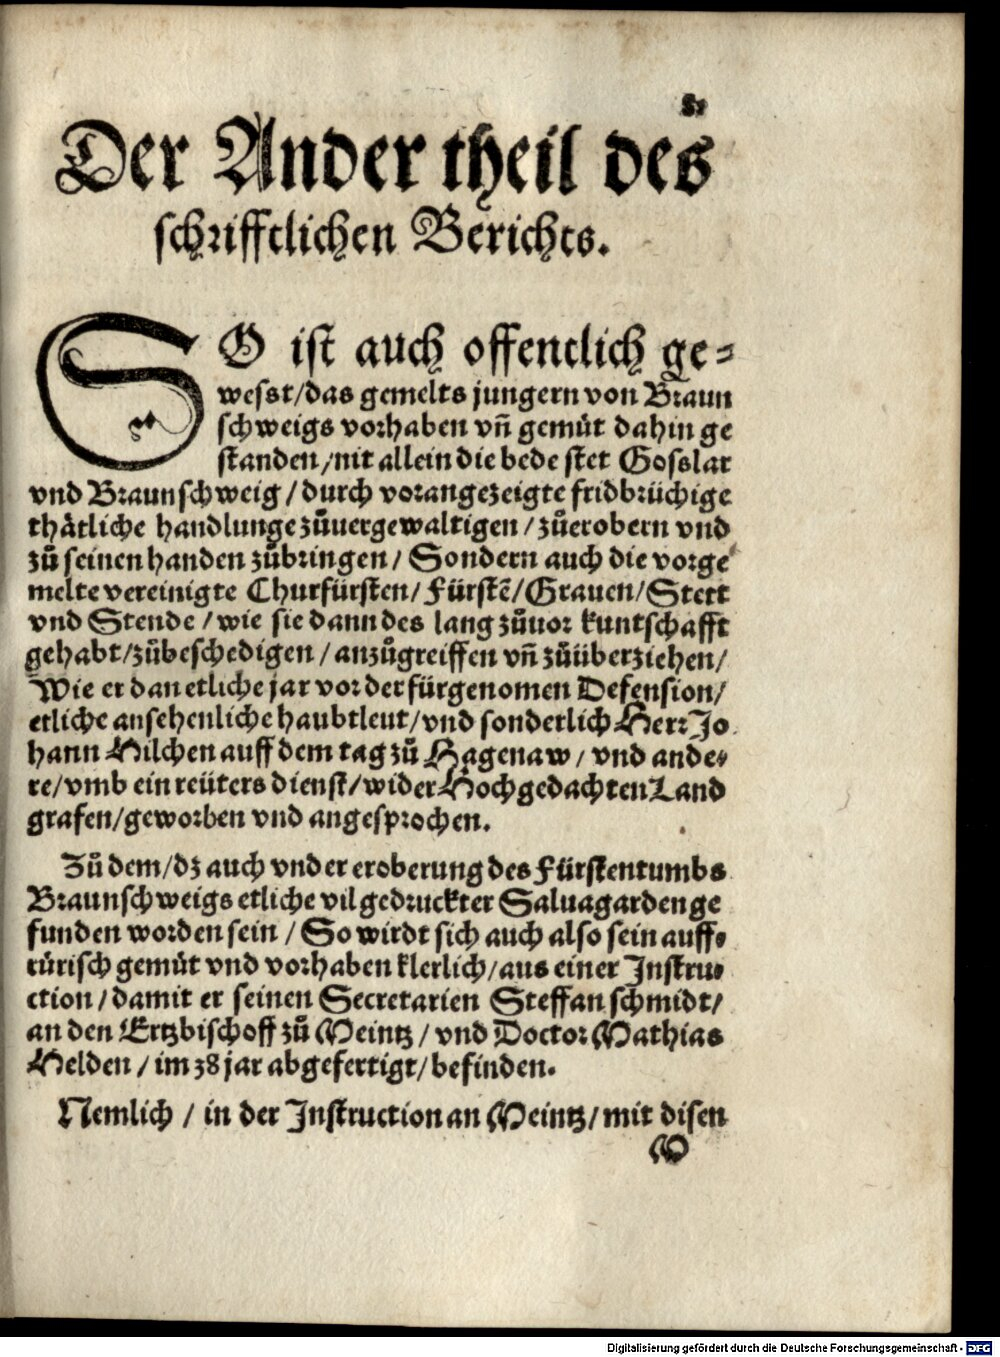 Der Ander theil des
schrifftlichen Berichts.
SO ist auch offentlich ge⸗
wesst/das gemelts jungern von Braun
schweigs vorhaben vñ gemüt dahin ge
standen/nit allein die bede stet Gosslar
vnd Braunschweig/durch vorangezeigte fridbrüchige
thätliche handlunge zůuergewaltigen/zůerobern vnd
zů seinen handen zůbringen/Sondern auch die vorge
melte vereinigte Churfürsten/Fürstē/Grauen/Stett
vnd Stende/wie sie dann des lang zůuor kuntschafft
gehabt/zůbeschedigen/anzůgreiffen vñ zůüberziehen/
Wie er dan etliche jar vor der fürgenomen Defension/
etliche ansehenliche haubtleut/vnd sonderlich Herr Jo
hann Hilchen auff dem tag zů Hagenaw/vnd ande⸗
re/vmb ein reüters dienst/wider Hochgedachten Land
grafen/geworben vnd angesprochen.
Zů dem/dz auch vnder eroberung des Fürstentumbs
Braunschweigs etliche vil gedruckter Saluagarden ge
funden worden sein/So wirdt sich auch also sein auff⸗
rürisch gemüt vnd vorhaben klerlich/aus einer Instru⸗
ction/damit er seinen Secretarien Steffan schmidt/
an den Ertzbischoff zů Meintz/vnd Doctor Mathias
Helden/im 38 jar abgefertigt/befinden.
Nemlich/in der Instruction an Meintz/mit disen
W
Digitalisierung gefördert durch die Deutsche Forschungsgemeinschaft - DFG